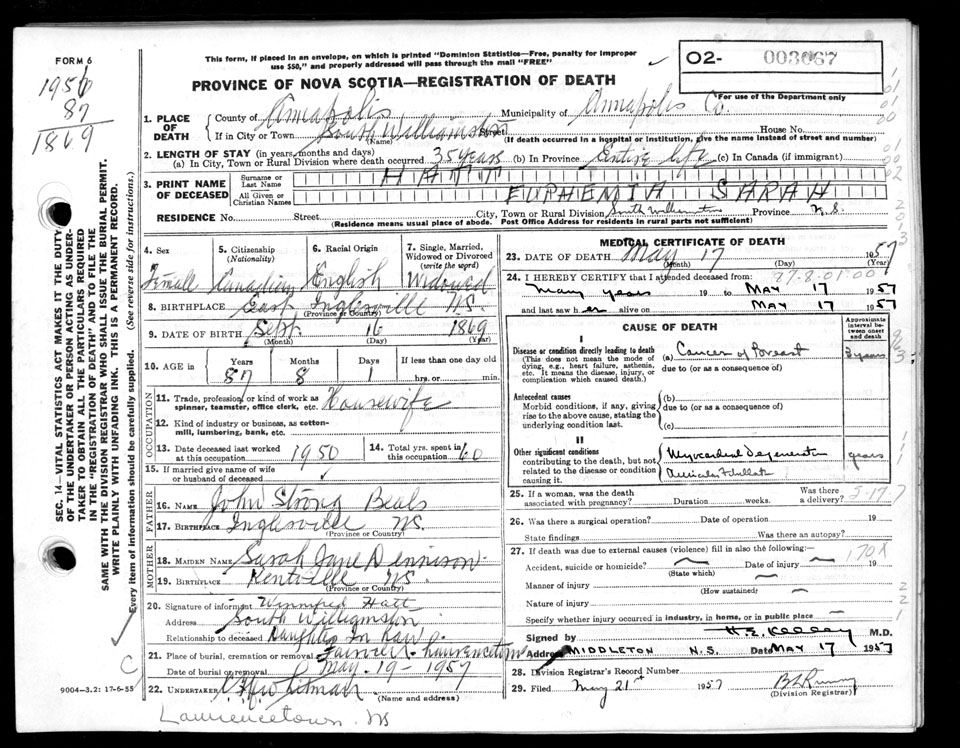 FORM 6
This form, if placed in an envelope, on which is printed "Dominion Statistics—Free, penalty for improper
use $50," and properly addressed will pass through the mail "FREE"
PROVINCE OF NOVA SCOTIA—REGISTRATION OF DEATH
O2- 003067
For use of the Department only
1956
87
1869
1. PLACE OF DEATH
County of Annapolis Municipality of Annapolis Co.
If in City or Town South Williamston Street House No.
(Name) (If death occurred in a hospital or institution, give the name instead of street and number)
2. LENGTH OF STAY (in years, months and days)
(a) In City, Town or Rural Division where death occurred 35 years (b) In Province Entire life (c) In Canada (if immigrant)
3. PRINT NAME OF DECEASED
Surname or Last Name HATT
All Given or Christian Names EUPHEMIA SARAH
RESIDENCE No. Street City, Town or Rural Division South Williamston Province N.S.
(Residence means usual place of abode. Post Office Address for residents in rural parts not sufficient)
SEC. 14—VITAL STATISTICS ACT MAKES IT THE DUTY
OF THE UNDERTAKER OR PERSON ACTING AS UNDER-
TAKER TO OBTAIN ALL THE PARTICULARS REQUIRED
IN THE "REGISTRATION OF DEATH" AND TO FILE THE
SAME WITH THE DIVISION REGISTRAR WHO SHALL ISSUE THE BURIAL PERMIT.
WRITE PLAINLY WITH UNFADING INK. THIS IS A PERMANENT RECORD.
Every item of information should be carefully supplied. (See reverse side for instructions.)
4. Sex Female
5. Citizenship (Nationality) Canadian
6. Racial Origin English
7. Single, Married, Widowed or Divorced (write the word) Widowed
8. BIRTHPLACE East Inglesville N.S.
(Province or Country)
9. DATE OF BIRTH Sept. 16 1869
(Month) (Day) (Year)
10. AGE in Years 87 Months 8 Days 1 If less than one day old hrs. or min.
OCCUPATION
11. Trade, profession or kind of work as
spinner, teamster, office clerk, etc. Housewife
12. Kind of industry or business, as cotton-
mill, lumbering, bank, etc.
13. Date deceased last worked at this occupation 1950
14. Total yrs. spent in this occupation 60
15. If married give name of wife
or husband of deceased
FATHER
16. NAME John Strong Beals
17. BIRTHPLACE Inglesville NS.
(Province or Country)
MOTHER
18. MAIDEN NAME Sarah Jane Dennison
19. BIRTHPLACE Kentville NS.
(Province or Country)
20. Signature of informant Winnifred Hatt
Address South Williamston
Relationship to deceased Daughter In Law
21. Place of burial, cremation or removal Lawrencetown
Date of burial or removal May. 19 - 1957
22. UNDERTAKER Whitman
(Name and address)
Lawrencetown. NS
9004—3.2: 17-6-55
C
MEDICAL CERTIFICATE OF DEATH
23. DATE OF DEATH May 17 1957
(Month) (Day) (Year)
24. I HEREBY CERTIFY that I attended deceased from: 97-8-01-00
Many years 19 to MAY 17 1957
and last saw her alive on MAY 17 1957
CAUSE OF DEATH
Approximate interval between onset and death
I
Disease or condition directly leading to death (a) Cancer of Breast 3 years
(This does not mean the mode of
dying, e.g., heart failure, asthenia,
etc. It means the disease, injury, or
complication which caused death.)
due to (or as a consequence of)
Antecedent causes (b)
Morbid conditions, if any, giving
rise to the above cause, stating the
underlying condition last.
due to (or as a consequence of)
(c)
II
Other significant conditions
contributing to the death, but not
related to the disease or condition
causing it.
Myocardial Degeneration years
25. If a woman, was the death
associated with pregnancy? Duration weeks. Was there a delivery?
26. Was there a surgical operation? Date of operation 19
State findings Was there an autopsy?
27. If death was due to external causes (violence) fill in also the following:— 170X
Accident, suicide or homicide? Date of injury 19
(State which)
Manner of injury
(How sustained)
Nature of injury
Specify whether injury occurred in industry, in home, or in public place
Signed by M.D.
Address MIDDLETON N.S. Date MAY 17 1957
28. Division Registrar's Record Number
29. Filed May 21st 1957
(Division Registrar)